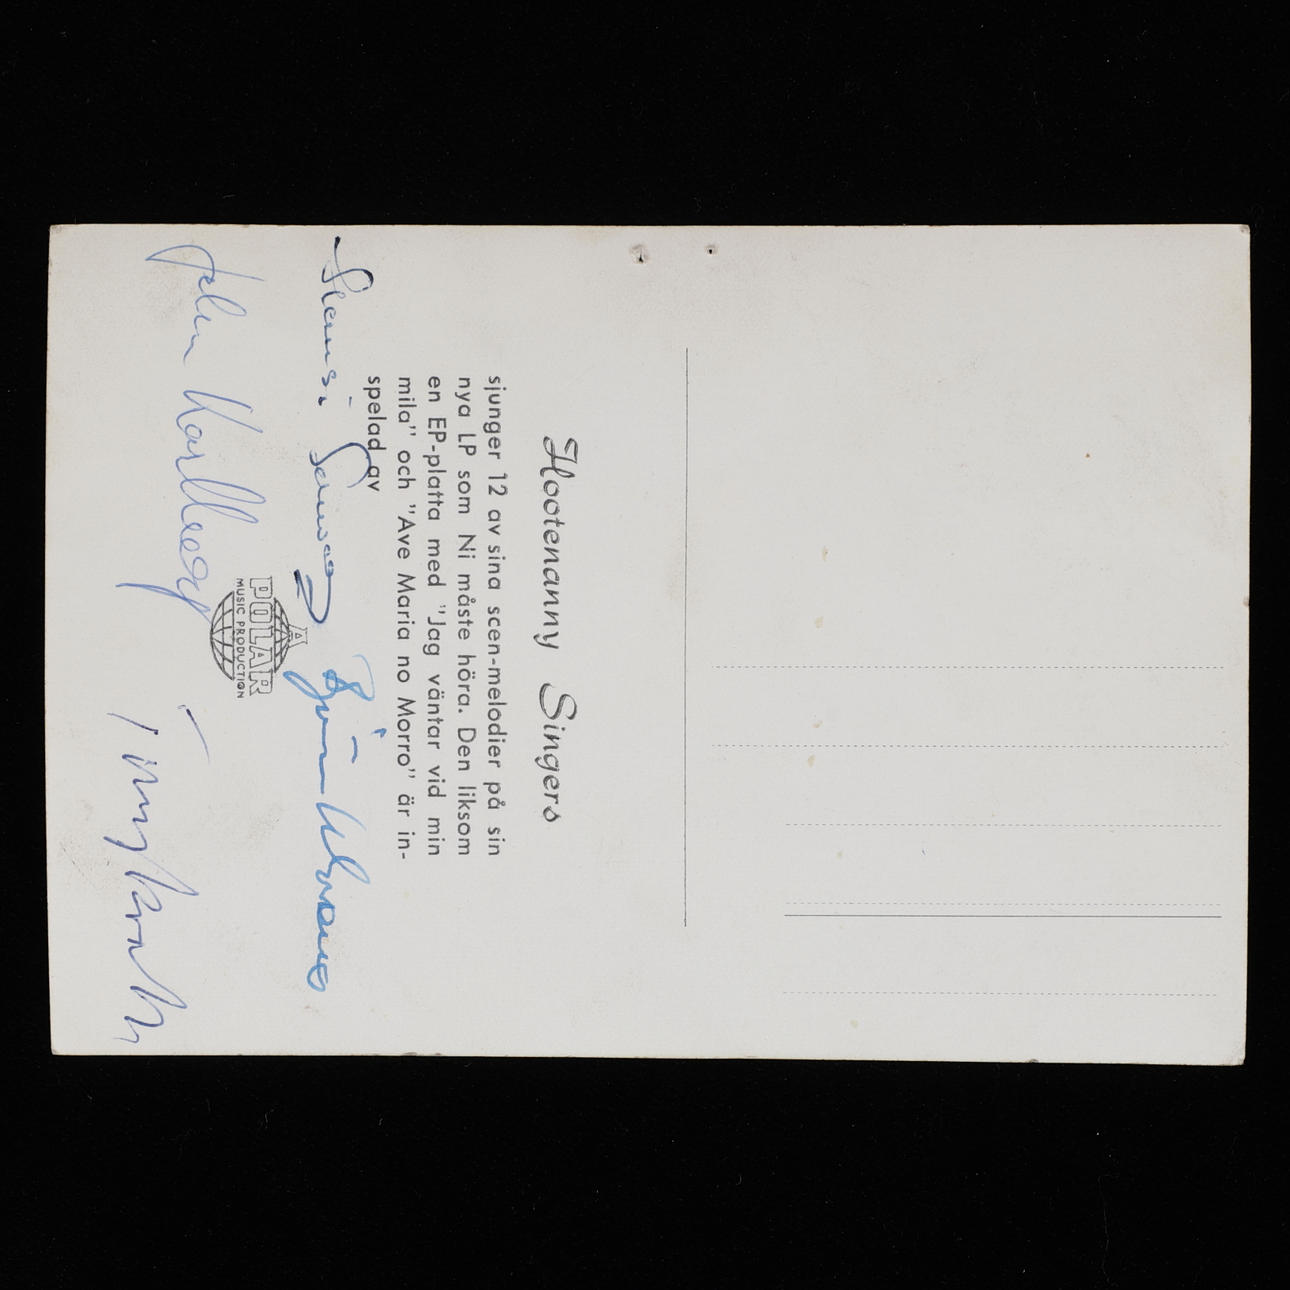 Hootenanny Singers
sjunger 12 av sina scen-melodier på sin
nya LP som Ni måste höra. Den liksom
en EP-platta med "Jag väntar vid min
mila" och "Ave Maria no Morro" är in-
spelad av
Hansi Schwarz Björn Ulvaeus
POLAR
MUSIC PRODUCTION
Johan Karlberg Tony Rooth